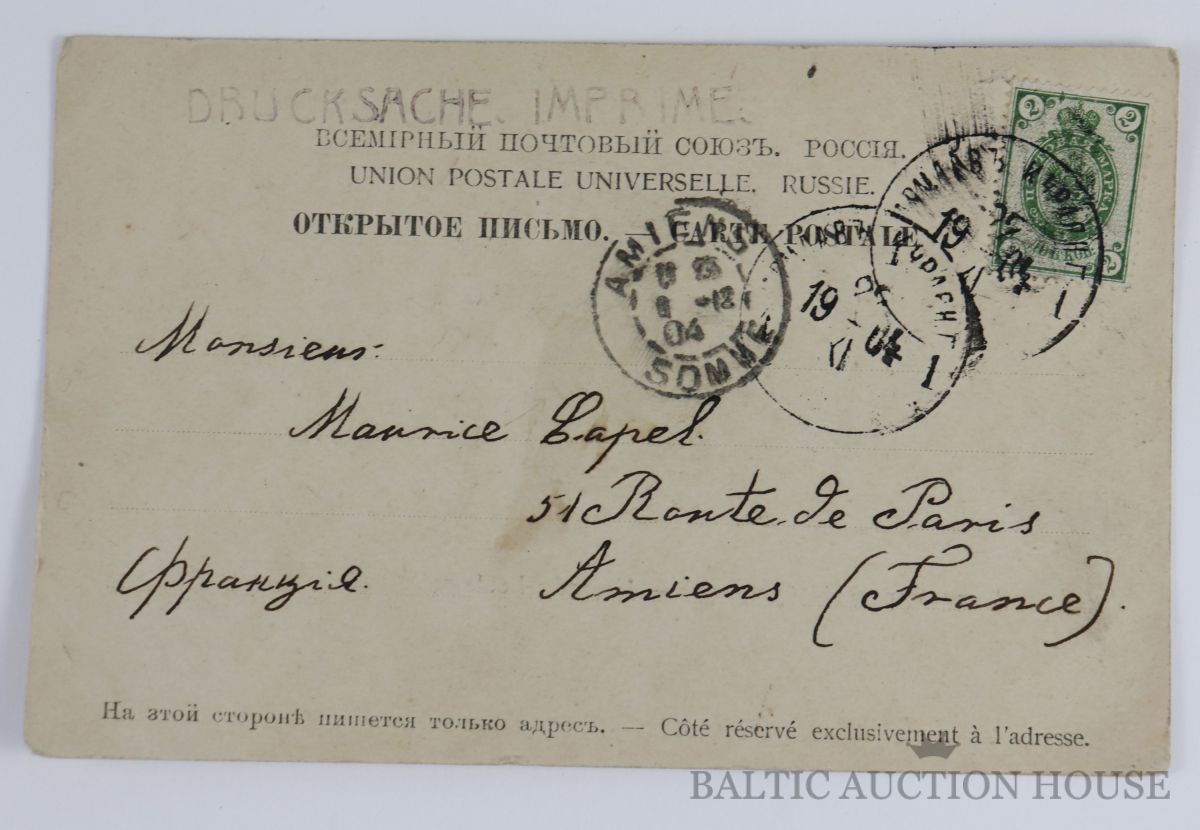 DRUCKSACHE. IMPRIME.
ВСЕМІРНЫЙ ПОЧТОВЫЙ СОЮЗЪ. РОССІЯ.
UNION POSTALE UNIVERSELLE. RUSSIE.
ОТКРЫТОЕ ПИСЬМО. — CARTE POSTALE
2 2
2
AMIENS
04
SOMME
19 04
XI
1
19 04
XI
1
Monsieur
Maurice Capel.
51 Route de Paris
Франція. Amiens (France).
На этой сторонѣ пишется только адресъ. — Côté réservé exclusivement à l'adresse.
BALTIC AUCTION HOUSE